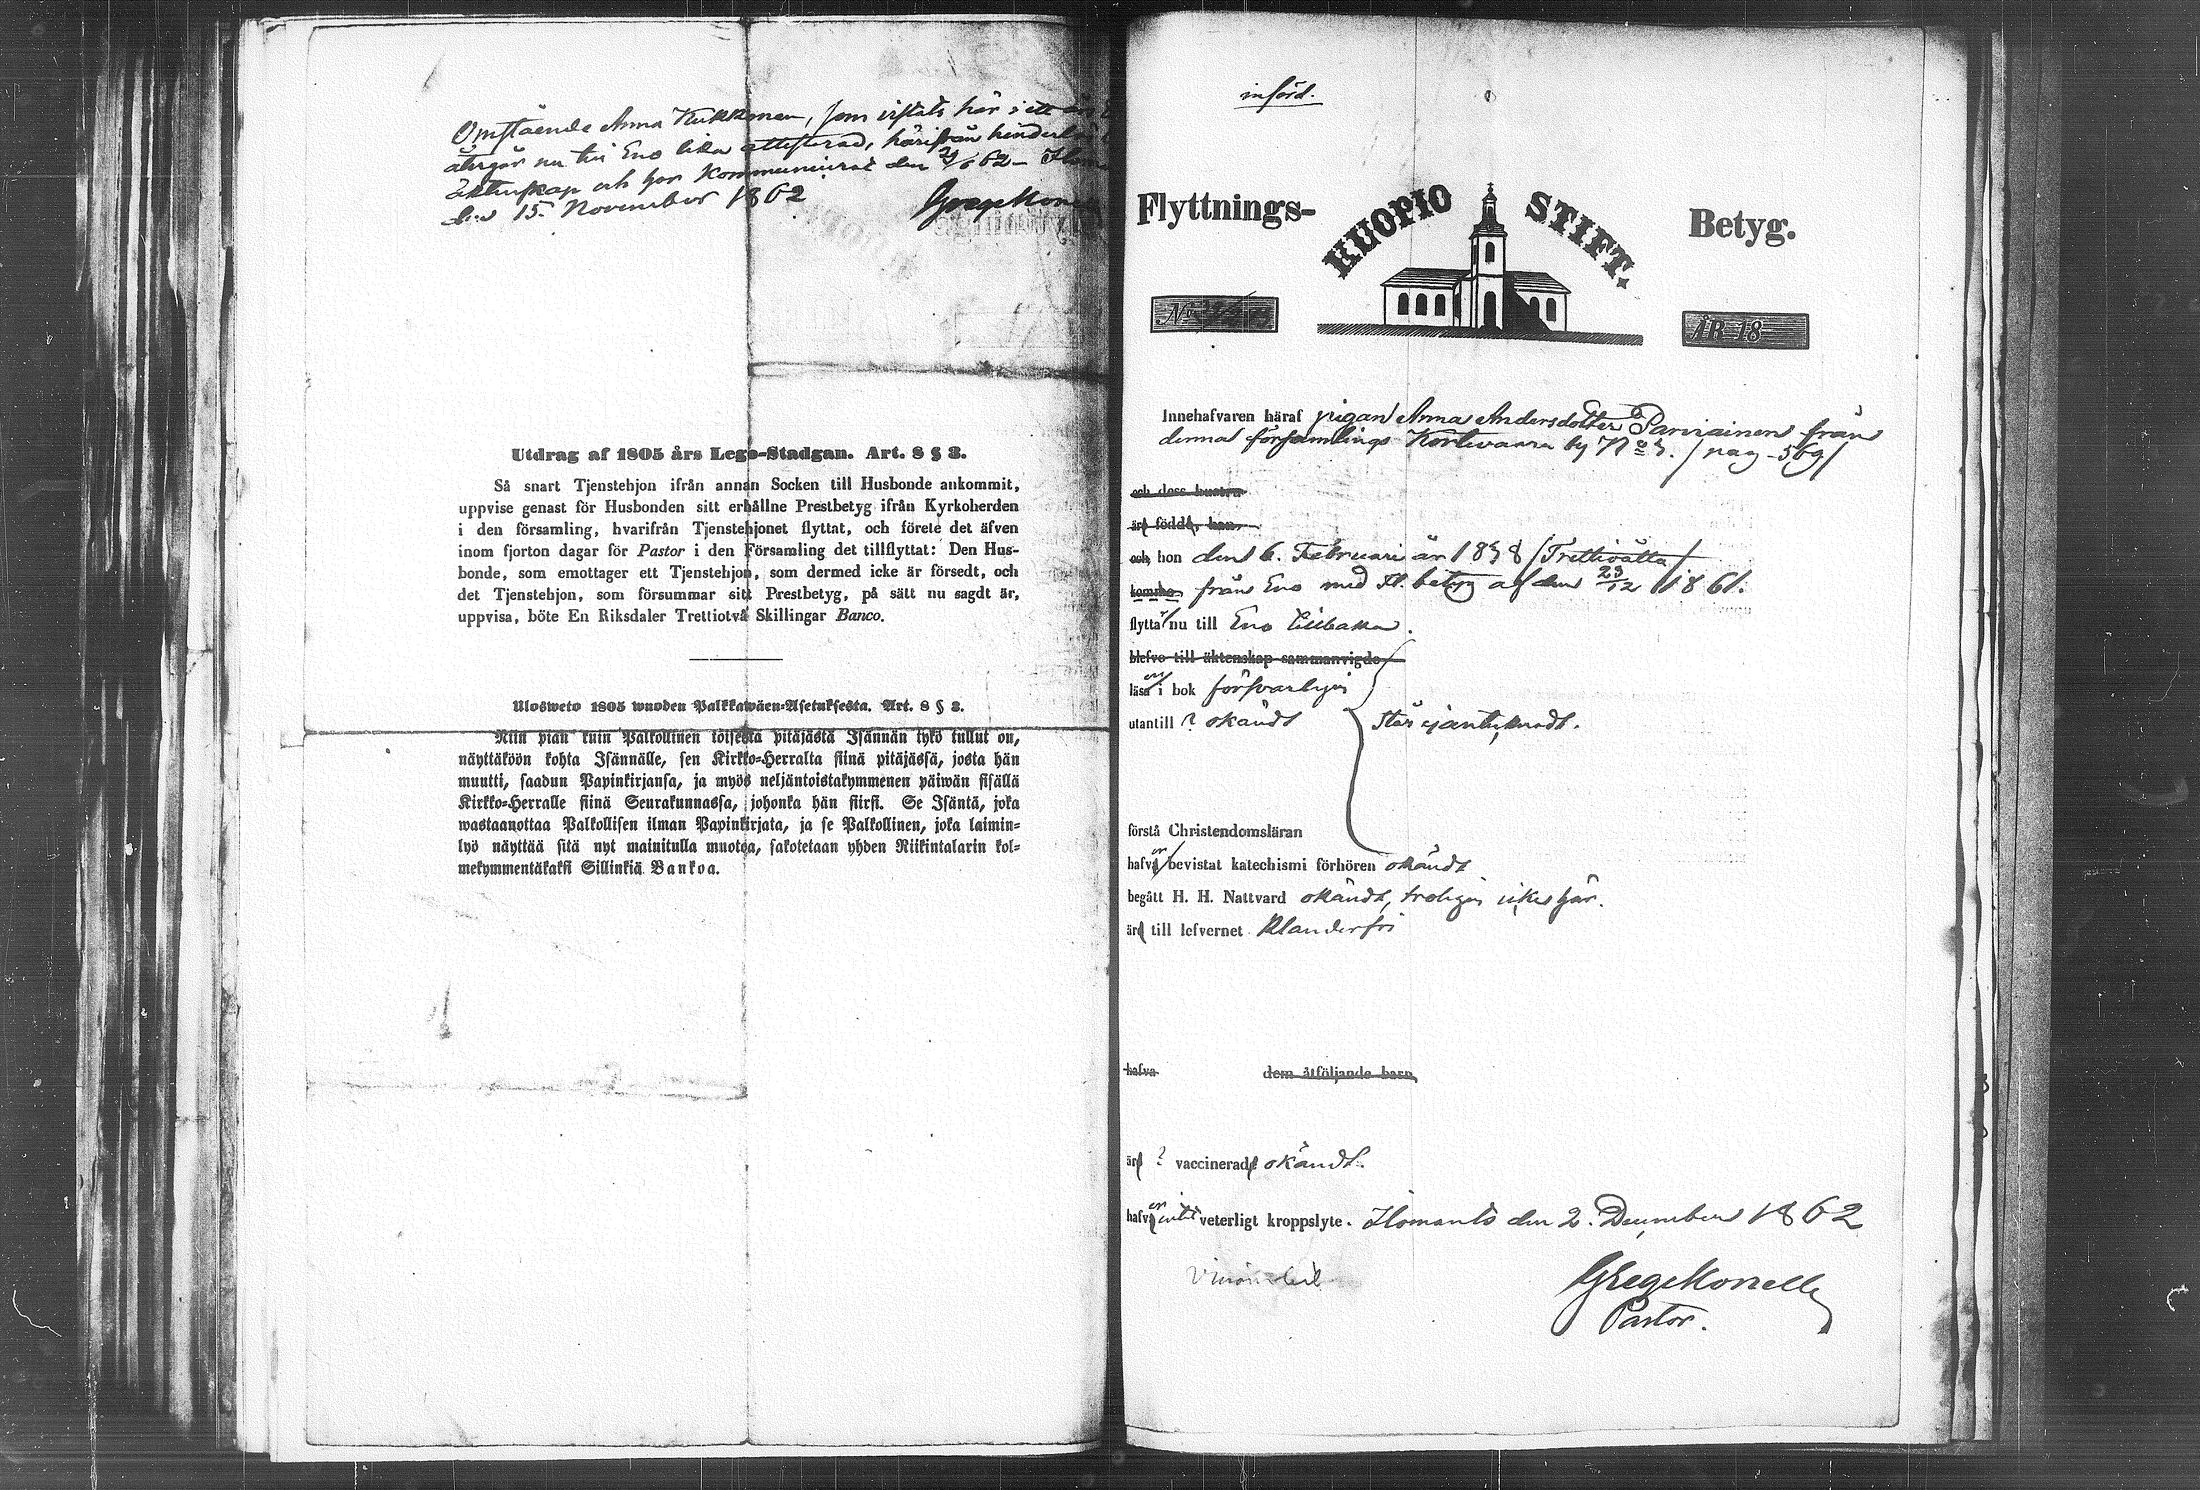 Omstående Anna Kukkonen, som vistats här i ett år,
återgår nu till Eno lika attesterad, härifrån hinderlös
äktenskap och har kommunicerat den 62 –
den 15. November 1862
Utdrag af 1805 års Lego-Stadgan. Art. 8 § 3.
Så snart Tjenstehjon ifrån annan Socken till Husbonde ankommit,
uppvise genast för Husbonden sitt erhållne Prestbetyg ifrån Kyrkoherden
i den församling, hvarifrån Tjenstehjonet flyttat, och förete det äfven
inom fjorton dagar för Pastor i den Församling det tillflyttat: Den Hus-
bonde, som emottager ett Tjenstehjon, som dermed icke är försedt, och
det Tjenstehjon, som försummar sitt Prestbetyg, på sätt nu sagdt är,
uppvisa, böte En Riksdaler Trettiotvå Skillingar Banco.
Ulosweto 1805 wuoden Palkkawäen-Asetuksesta. Art. 8 § 3.
Niin pian kuin Palkollinen toisesta pitäjästä Isännän tykö tullut on,
näyttäköön kohta Isännälle, sen Kirkko-Herralta siinä pitäjässä, josta hän
muutti, saadun Papinkirjansa, ja myös neljäntoistakymmenen päiwän sisällä
Kirkko-Herralle siinä Seurakunnassa, johonka hän siirsi. Se Isäntä, joka
wastaanottaa Palkollisen ilman Papinkirjata, ja se Palkollinen, joka laimin-
lyö näyttää sitä nyt mainitulla muotoa, sakotetaan yhden Riikintalarin kol-
mekymmentäkaksi Sillinkiä Bankoa.
införd.
Flyttnings- KUOPIO STIFT. Betyg.
No ÅR 18
Innehafvaren häraf pigan Anna Andersdotter Parviainen från
denna församlings Kortevaara by No 3. / pag. 569 /
och dess hustru
äro födde, han
och hon den 6. Februari år 1838 / Trettioåtta /
komme från Eno med fl. betyg af den 23/12 1861.
flytta nu till Eno tillbaka.
blefvo till äktenskap sammanvigde
läsa i bok försvarligen
utantill ? okändt står ej antecknadt.
förstå Christendomsläran
hafva bevistat katechismi förhören okändt
begått H. H. Nattvard okändt, troligen icke här.
äro till lefvernet klanderfri
hafva dem åtföljande barn
äro ? vaccinerade okändt.
hafva intet veterligt kroppslyte. Ilomants den 2. December 1862
Pastor.